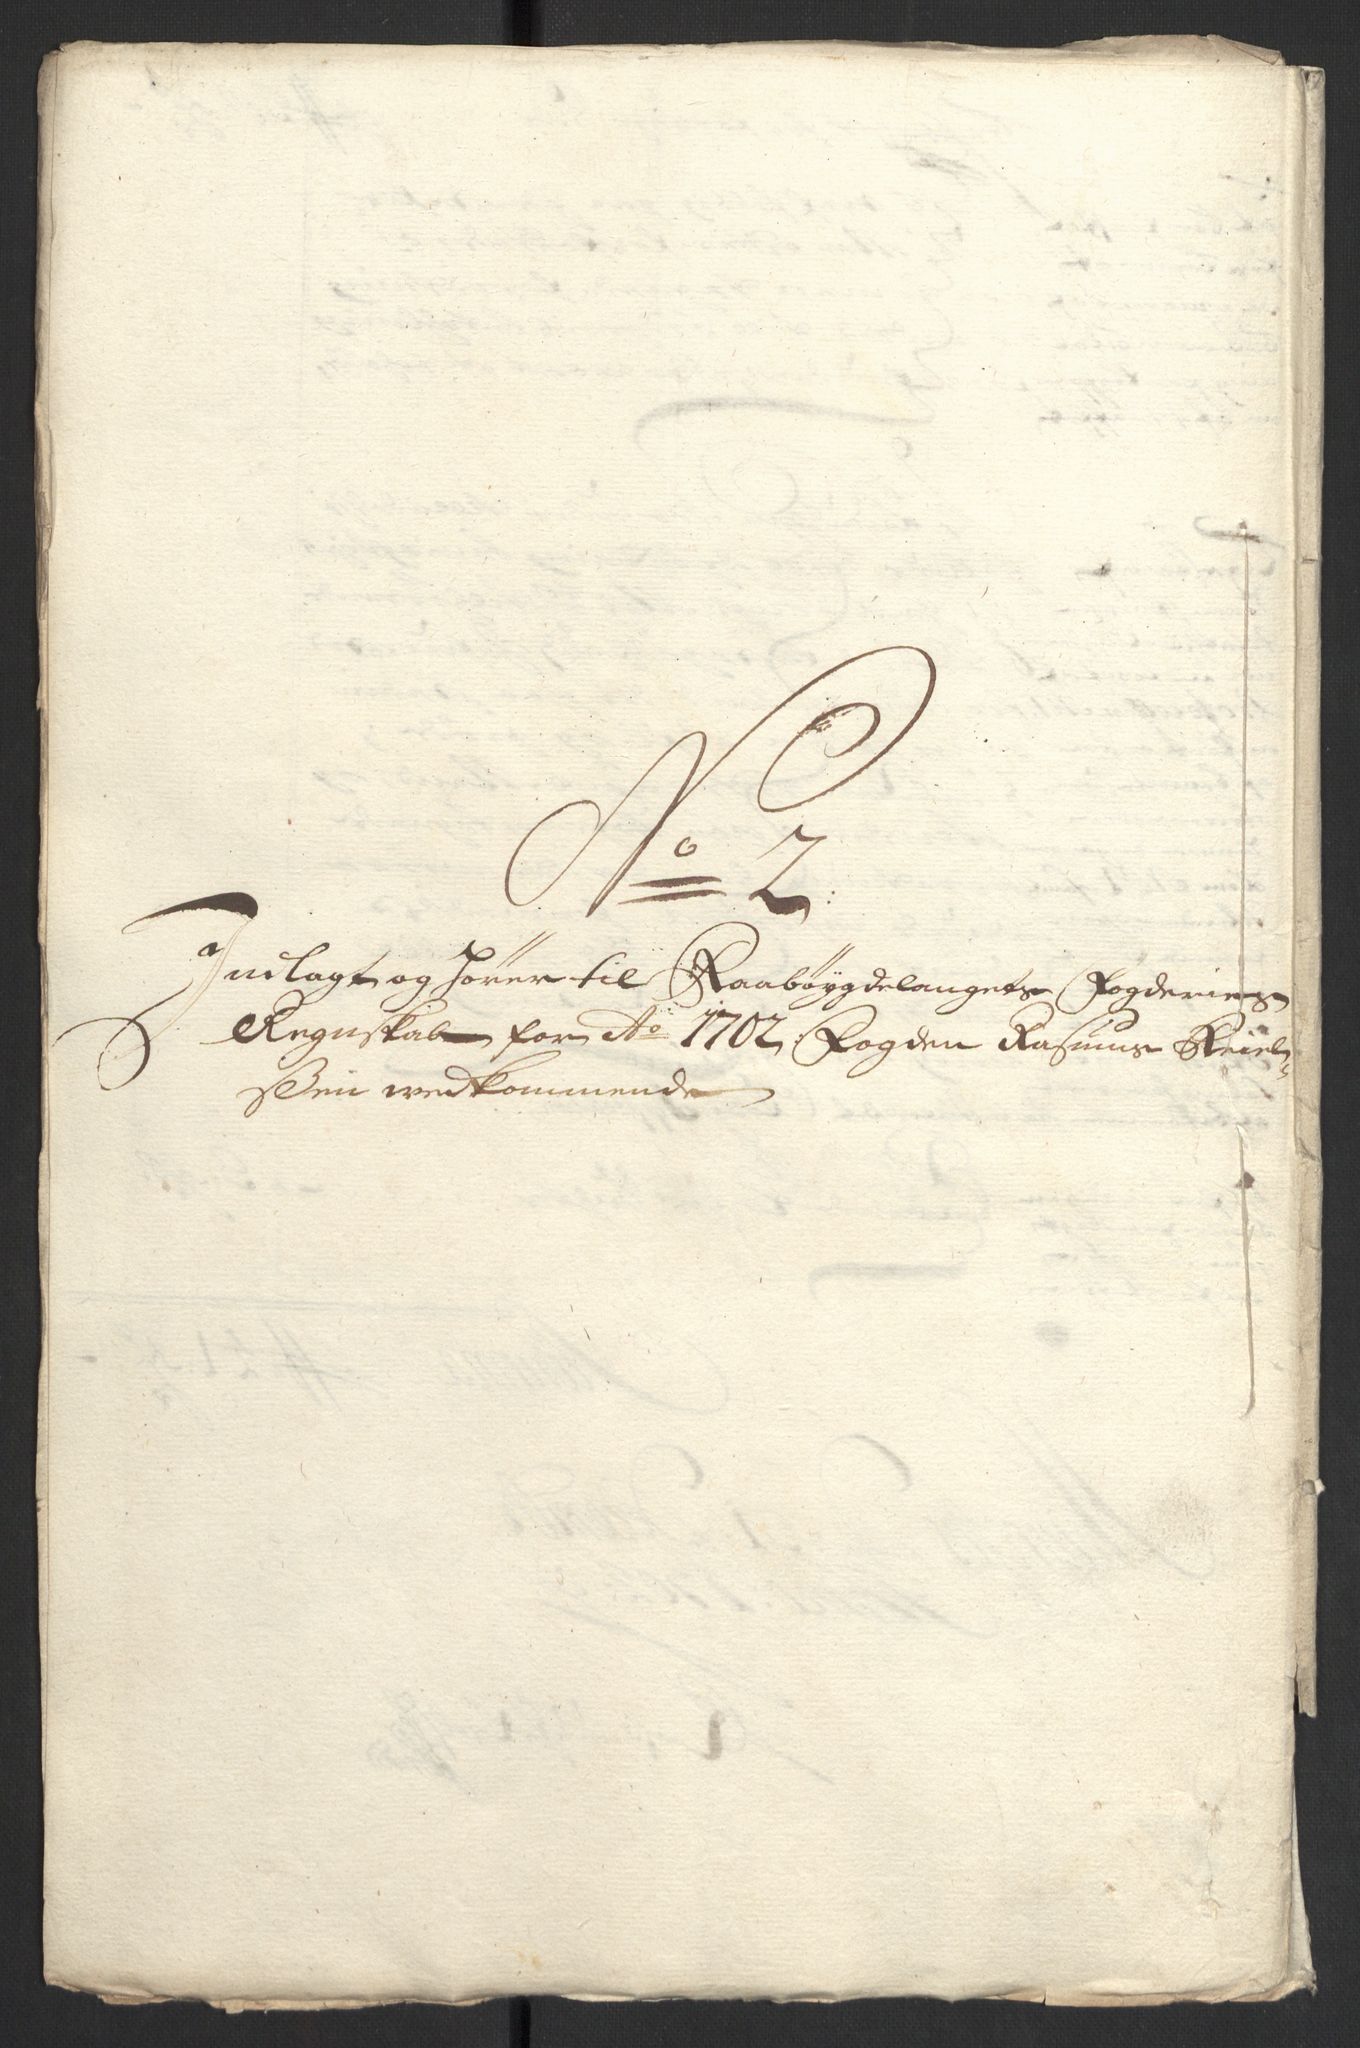 No 2:
Indlagt og hører til Raabøygdelaugets Fogderies
Regnskab for Ao 1702. Fogden Rasmus Keiel=
ssen wedkommende